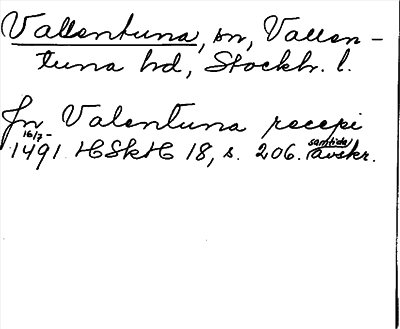 Vallentuna, sn, Vallen-
tuna hd, Stockh. l.
Jn Valentuna recepi
16/7 -
1491 HSkH 18, s. 206. samtida avskr.